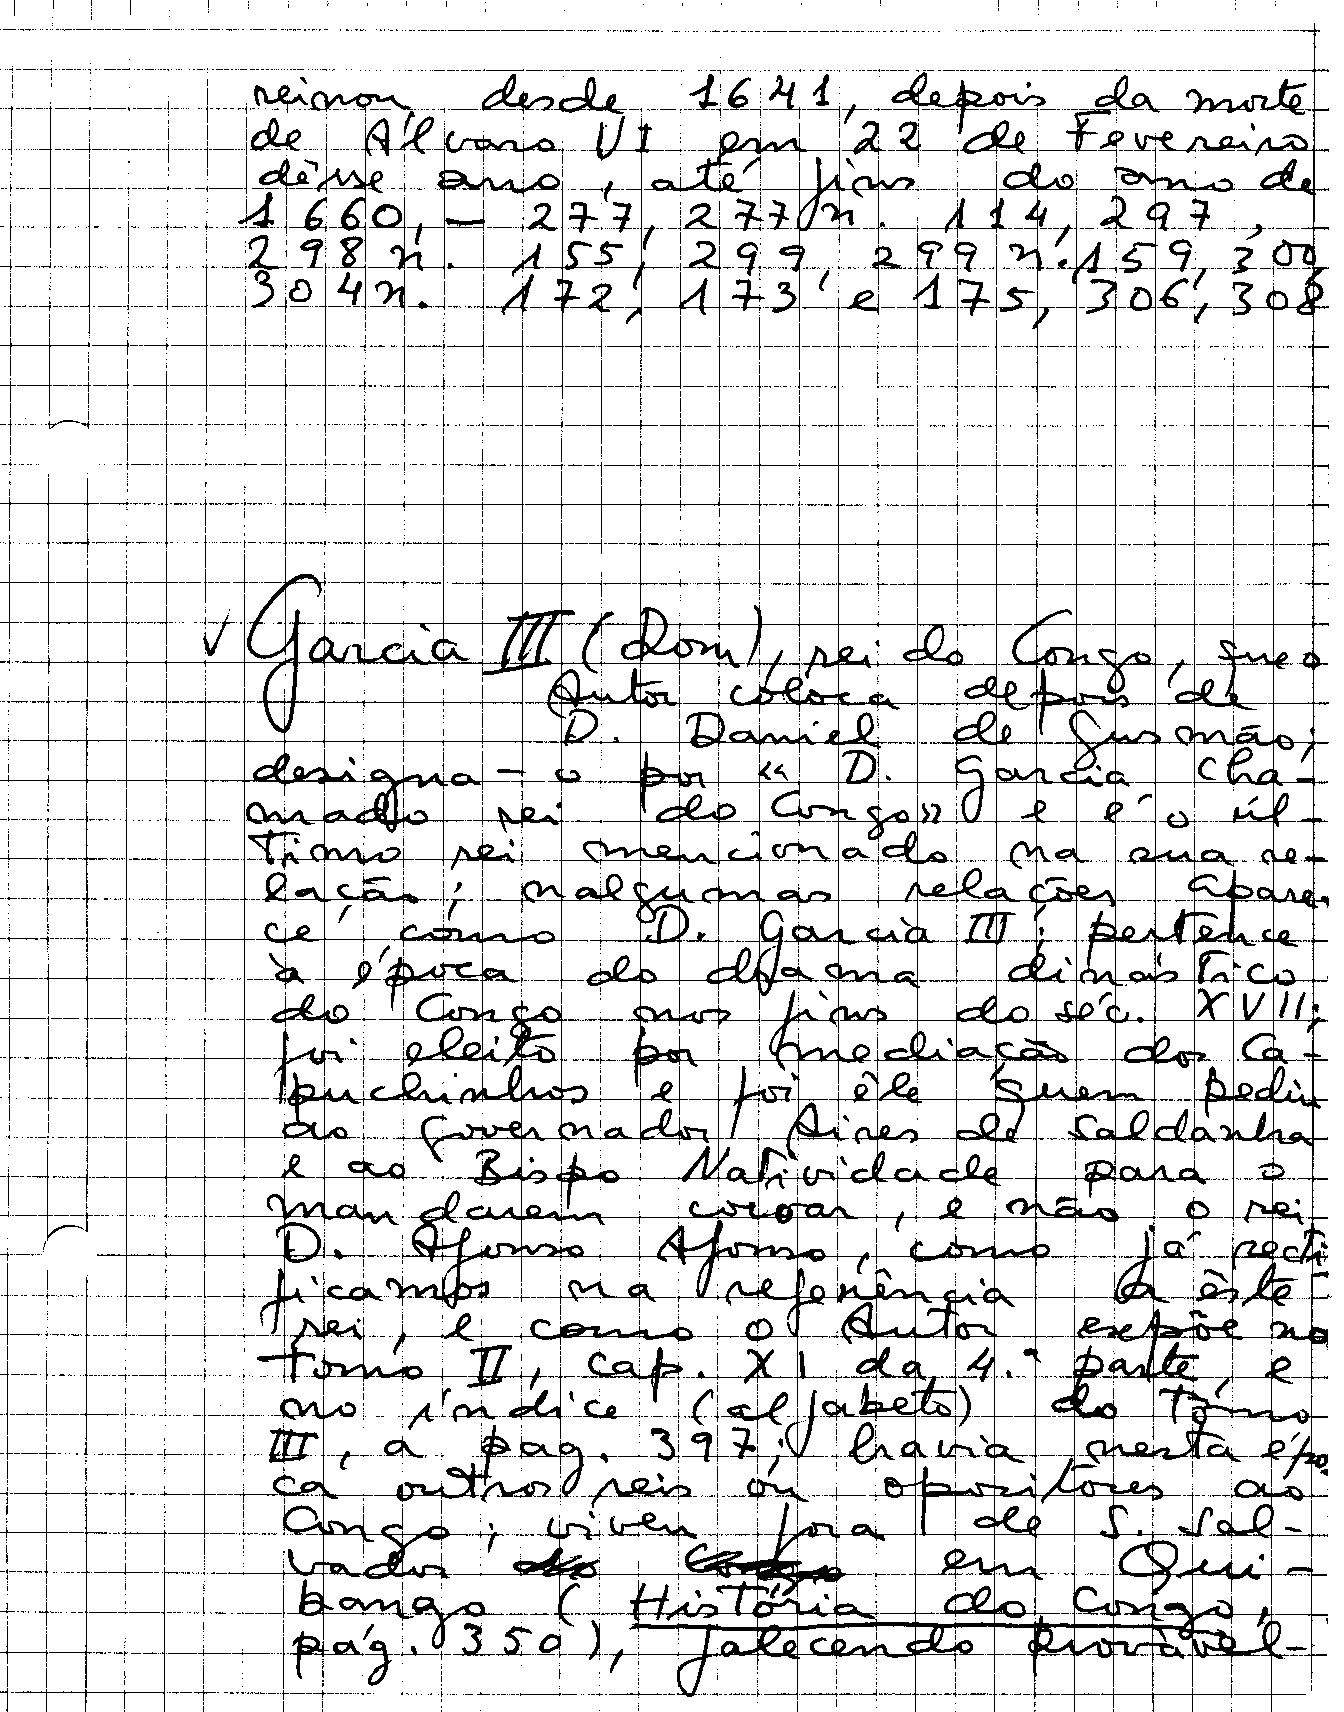 reinou desde 1641, depois da morte
de Álvaro VI em 22 de Fevereiro
dêsse ano, até fins do ano de
1660, - 277, 277 n. 114, 297,
298 n. 155, 299, 299 n. 159, 300,
304 n. 172, 173 e 175, 306, 308
✓ Garcia III (Dom), rei do Congo, que o
Autor coloca depois de
D. Daniel de Gusmão;
designa-o por « D. Garcia cha-
mado rei do Congo» e é o úl-
timo rei mencionado na sua re-
lação; nalgumas relações apare-
ce como D. Garcia III; pertence
à época do drama dinástico
do Congo nos fins do séc. XVII;
foi eleito por mediação dos Ca-
puchinhos e foi êle quem pediu
ao Governador Aires de Saldanha
e ao Bispo Natividade para o
mandarem coroar, e não o rei
D. Afonso Afonso, como já recti-
ficamos na referência a êste
rei, e como o Autor expõe no
Tomo II, cap. XI da 4.ª parte, e
no índice (alfabeto) do Tômo
III, a pag. 397; havia nesta épo-
ca outros reis ou opositores ao
Congo; viveu fora de S. Sal-
vador em Qui-
bango (História do Congo,
pág. 350), falecendo provàvel-